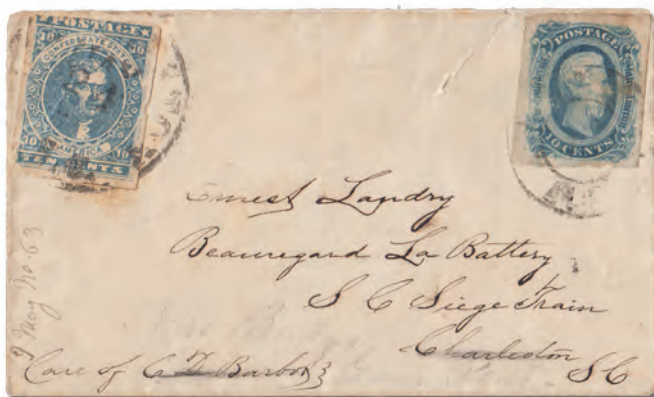 POSTAGE
10 10
CONFEDERATE STATES
AMERICA
10 10
TEN CENTS
POSTAGE
10 CENTS
Ernest Landry
Beauregard La Battery
S C Siege Train
Charleston
S C
Care of C
May 63